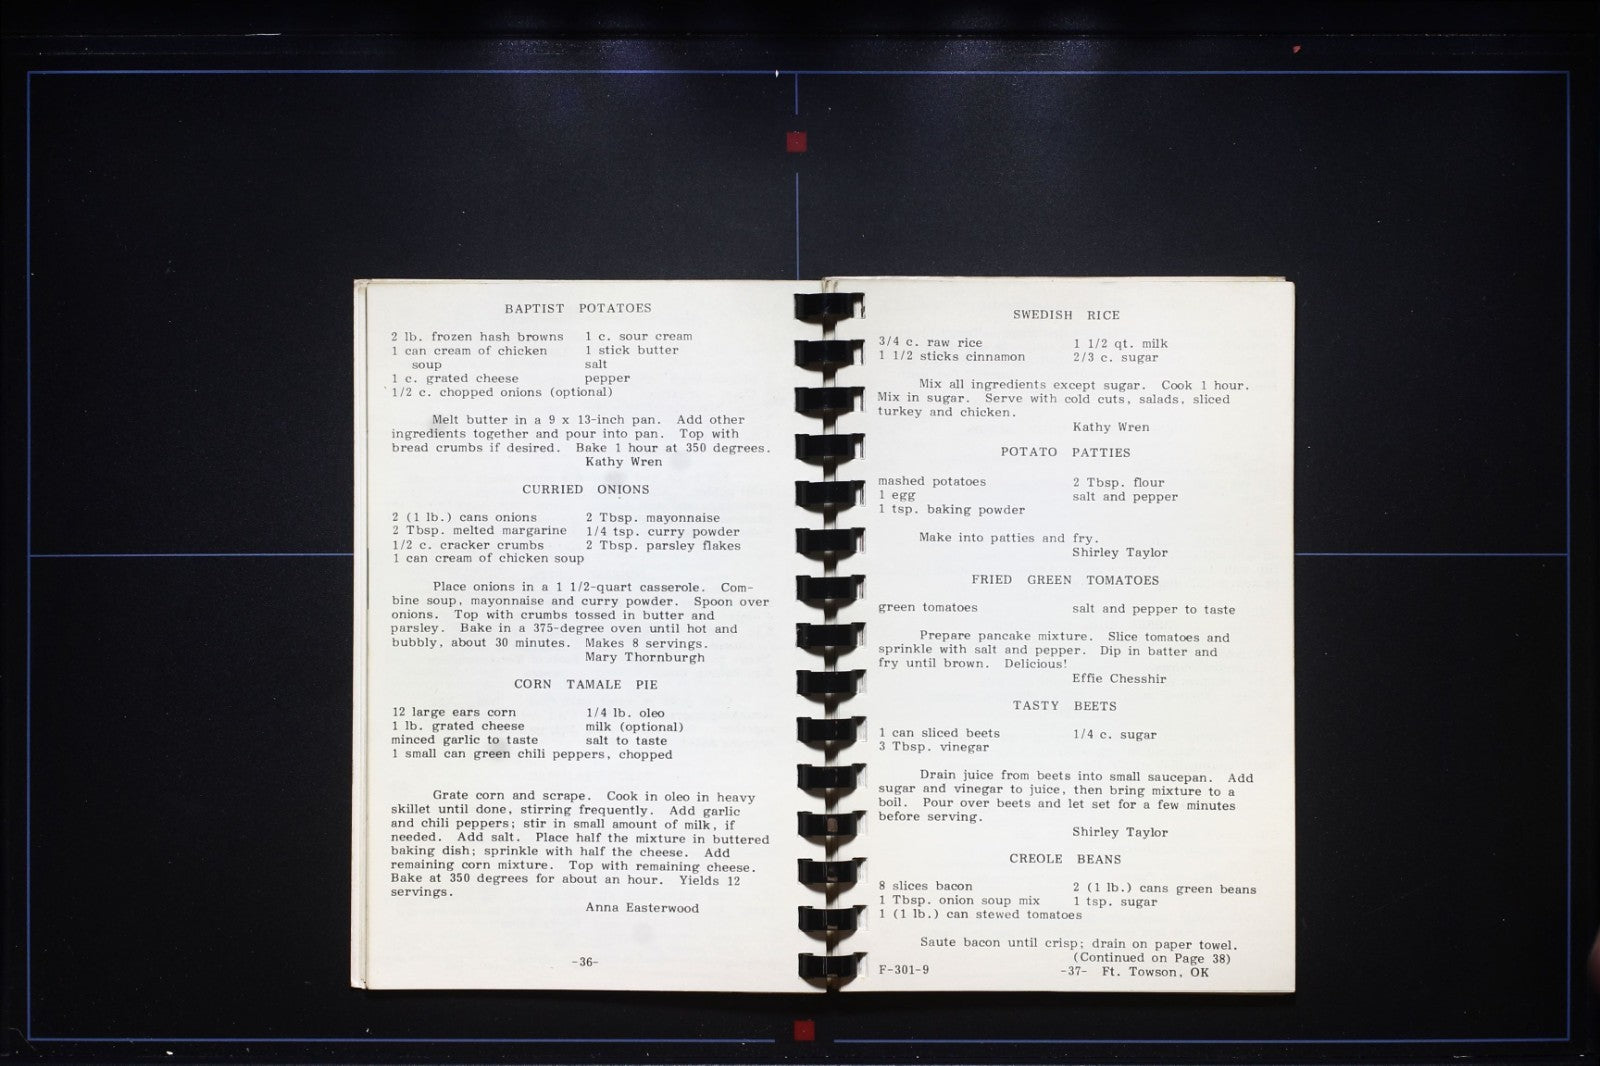 BAPTIST POTATOES
2 lb. frozen hash browns 1 c. sour cream
1 can cream of chicken 1 stick butter
soup salt
1 c. grated cheese pepper
1/2 c. chopped onions (optional)
Melt butter in a 9 x 13-inch pan. Add other
ingredients together and pour into pan. Top with
bread crumbs if desired. Bake 1 hour at 350 degrees.
Kathy Wren
CURRIED ONIONS
2 (1 lb.) cans onions 2 Tbsp. mayonnaise
2 Tbsp. melted margarine 1/4 tsp. curry powder
1/2 c. cracker crumbs 2 Tbsp. parsley flakes
1 can cream of chicken soup
Place onions in a 1 1/2-quart casserole. Com-
bine soup, mayonnaise and curry powder. Spoon over
onions. Top with crumbs tossed in butter and
parsley. Bake in a 375-degree oven until hot and
bubbly, about 30 minutes. Makes 8 servings.
Mary Thornburgh
CORN TAMALE PIE
12 large ears corn 1/4 lb. oleo
1 lb. grated cheese milk (optional)
minced garlic to taste salt to taste
1 small can green chili peppers, chopped
Grate corn and scrape. Cook in oleo in heavy
skillet until done, stirring frequently. Add garlic
and chili peppers; stir in small amount of milk, if
needed. Add salt. Place half the mixture in buttered
baking dish; sprinkle with half the cheese. Add
remaining corn mixture. Top with remaining cheese.
Bake at 350 degrees for about an hour. Yields 12
servings.
Anna Easterwood
-36-
SWEDISH RICE
3/4 c. raw rice 1 1/2 qt. milk
1 1/2 sticks cinnamon 2/3 c. sugar
Mix all ingredients except sugar. Cook 1 hour.
Mix in sugar. Serve with cold cuts, salads, sliced
turkey and chicken.
Kathy Wren
POTATO PATTIES
mashed potatoes 2 Tbsp. flour
1 egg salt and pepper
1 tsp. baking powder
Make into patties and fry.
Shirley Taylor
FRIED GREEN TOMATOES
green tomatoes salt and pepper to taste
Prepare pancake mixture. Slice tomatoes and
sprinkle with salt and pepper. Dip in batter and
fry until brown. Delicious!
Effie Chesshir
TASTY BEETS
1 can sliced beets 1/4 c. sugar
3 Tbsp. vinegar
Drain juice from beets into small saucepan. Add
sugar and vinegar to juice, then bring mixture to a
boil. Pour over beets and let set for a few minutes
before serving.
Shirley Taylor
CREOLE BEANS
8 slices bacon 2 (1 lb.) cans green beans
1 Tbsp. onion soup mix 1 tsp. sugar
1 (1 lb.) can stewed tomatoes
Saute bacon until crisp; drain on paper towel.
(Continued on Page 38)
F-301-9 -37- Ft. Towson, OK